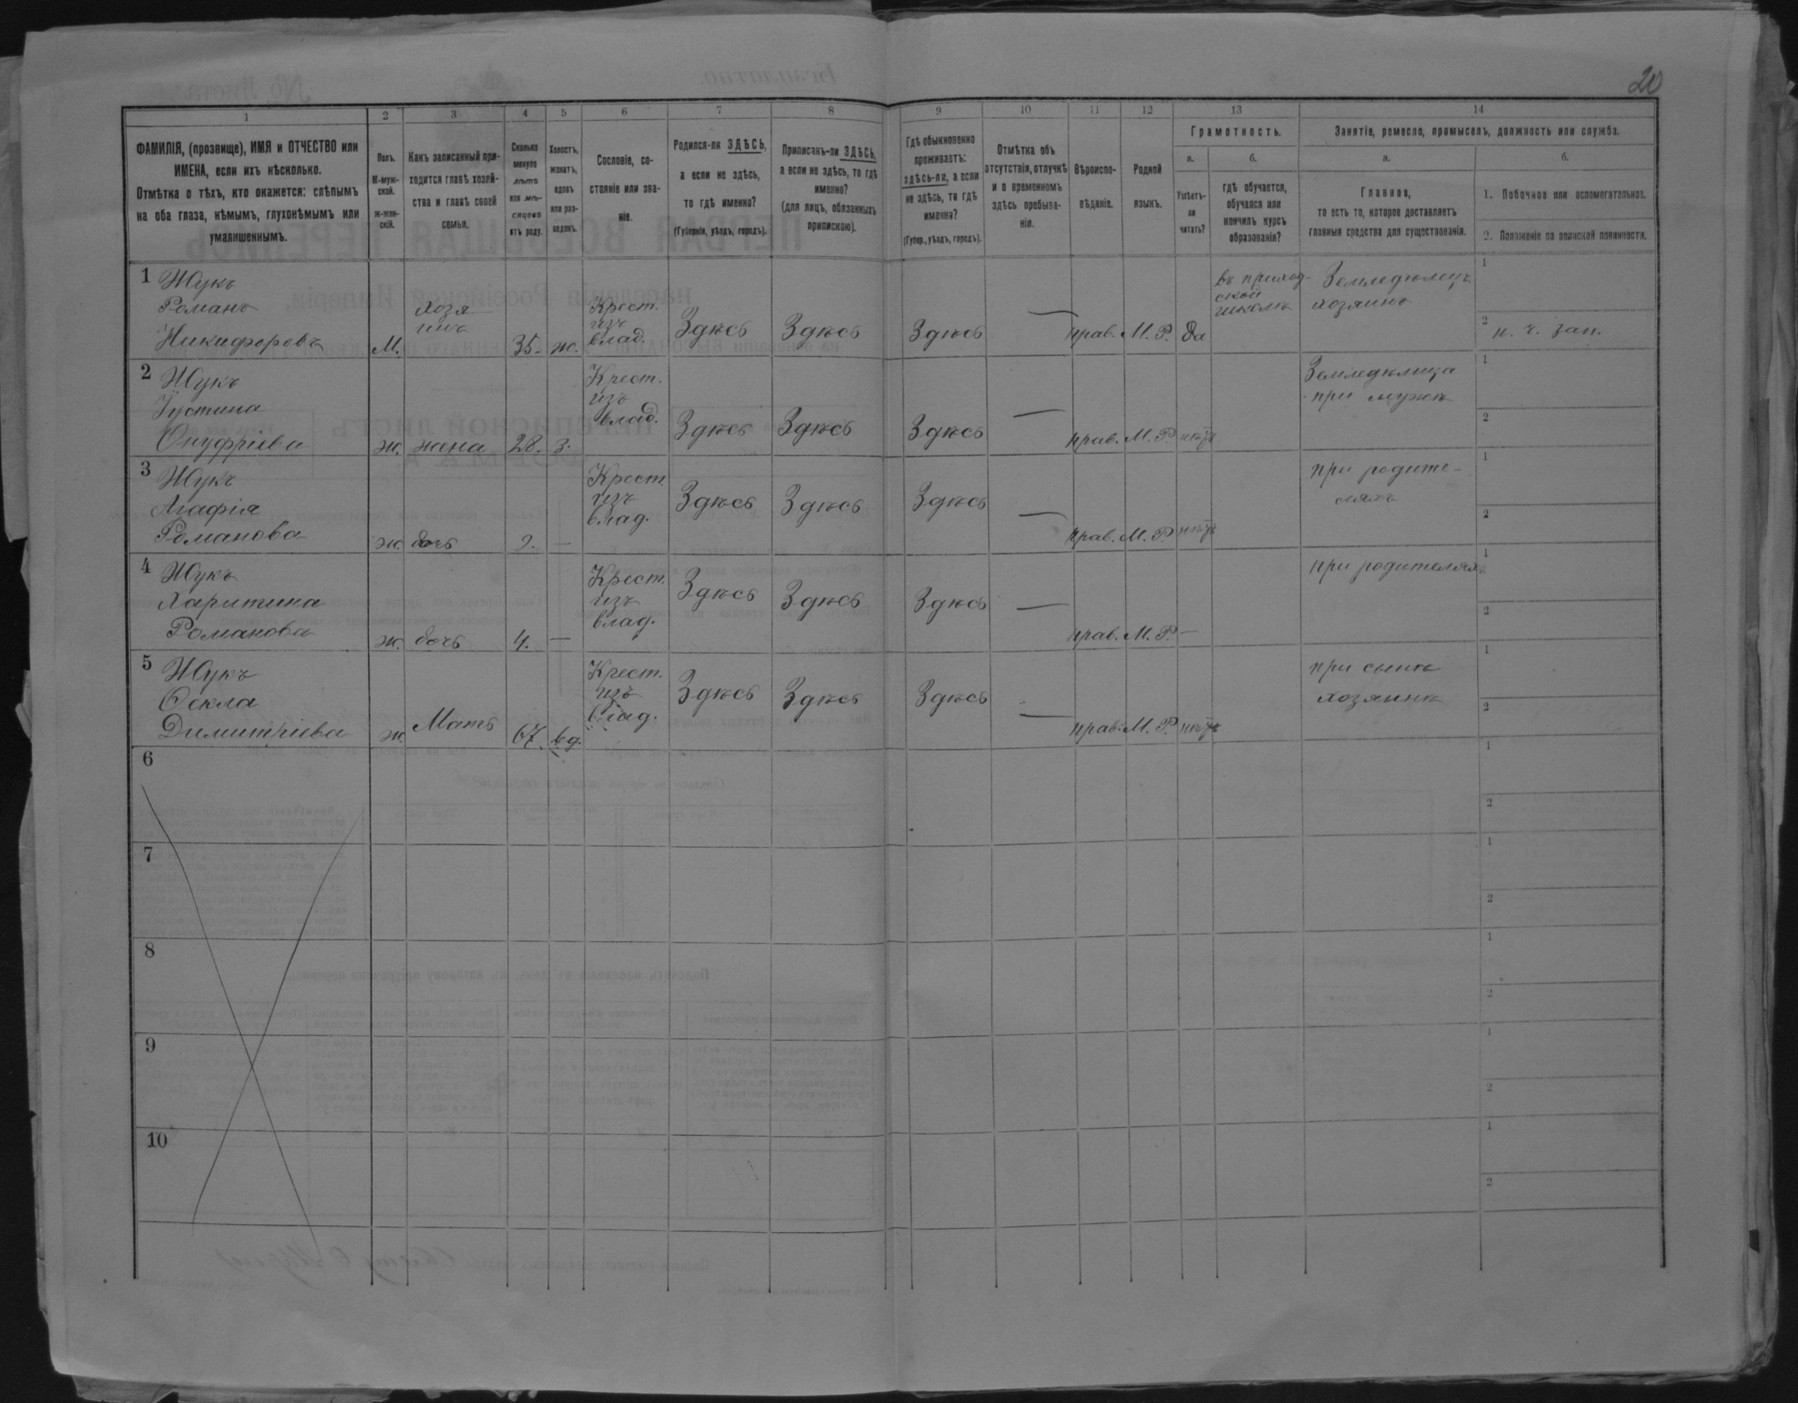 20
1
2
3
4
5
6
7
8
9
10
11
12
13
14
ФАМИЛІЯ, (прозвище), ИМЯ и ОТЧЕСТВО или
ИМЕНА, если ихъ нѣсколько.
Отмѣтка о тѣхъ, кто окажется: слѣпымъ
на оба глаза, нѣмымъ, глухонѣмымъ или
умалишеннымъ.
Полъ.
М-муж-
ской.
Ж-жен-
скій.
Какъ записанный при-
ходится главѣ хозяй-
ства и главѣ своей
семьи.
Сколько
минуло
лѣтъ
или мѣ-
сяцевъ
отъ роду.
Холостъ,
женатъ,
вдовъ
или раз-
веденъ.
Сословіе, со-
стояніе или зва-
ніе.
Родился-ли ЗДѢСЬ,
а если не здѣсь,
то гдѣ именно?
(Губернія, уѣздъ, городъ).
Приписанъ-ли ЗДѢСЬ,
а если не здѣсь, то гдѣ
именно?
(для лицъ, обязанныхъ
припискою).
Гдѣ обыкновенно
проживаетъ:
здѣсь-ли, а если
не здѣсь, то гдѣ
именно?
(Губер., уѣздъ, городъ).
Отмѣтка объ
отсутствіи, отлучкѣ
и о временномъ
здѣсь пребыва-
ніи.
Вѣроиспо-
вѣданіе.
Родной
языкъ.
Грамотность.
а.
б.
Умѣетъ-
ли
читать?
гдѣ обучается,
обучался или
кончилъ курсъ
образованія?
Занятіе, ремесло, промыселъ, должность или служба.
а.
б.
Главное,
то есть то, которое доставляетъ
главныя средства для существованія.
1. Побочное или вспомогательное.
2. Положеніе по воинской повинности.
1 Жукъ
Романъ
Никифоровъ
М.
хозя
инъ
35.
ж.
Крест.
изъ
влад.
Здѣсь
Здѣсь
Здѣсь
—
прав.
М. Р.
Да
въ приход-
ской
школѣ
Земледѣлецъ
хозяинъ
1
2
2 Жукъ
Устина
Онуфріева
ж.
жена
28.
з.
Крест.
изъ
влад.
Здѣсь
Здѣсь
Здѣсь
—
прав.
М. Р.
нѣтъ
Земледѣлица
при мужѣ
1
2
3 Жукъ
Агафія
Романова
ж.
дочь
9.
—
Крест.
изъ
влад.
Здѣсь
Здѣсь
Здѣсь
—
прав.
М. Р.
нѣтъ
при родите-
ляхъ
1
2
4 Жукъ
Харитина
Романова
ж.
дочь
4.
—
Крест.
изъ
влад.
Здѣсь
Здѣсь
Здѣсь
—
прав.
М. Р.
—
при родителяхъ
1
2
5 Жукъ
Ѳекла
Димитріева
ж
Мать
67.
вд.
Крест.
изъ
влад.
Здѣсь
Здѣсь
Здѣсь
—
прав.
М. Р.
нѣтъ
при сынѣ
хозяинѣ
1
2
6
1
2
7
1
2
8
1
2
9
1
2
10
1
2